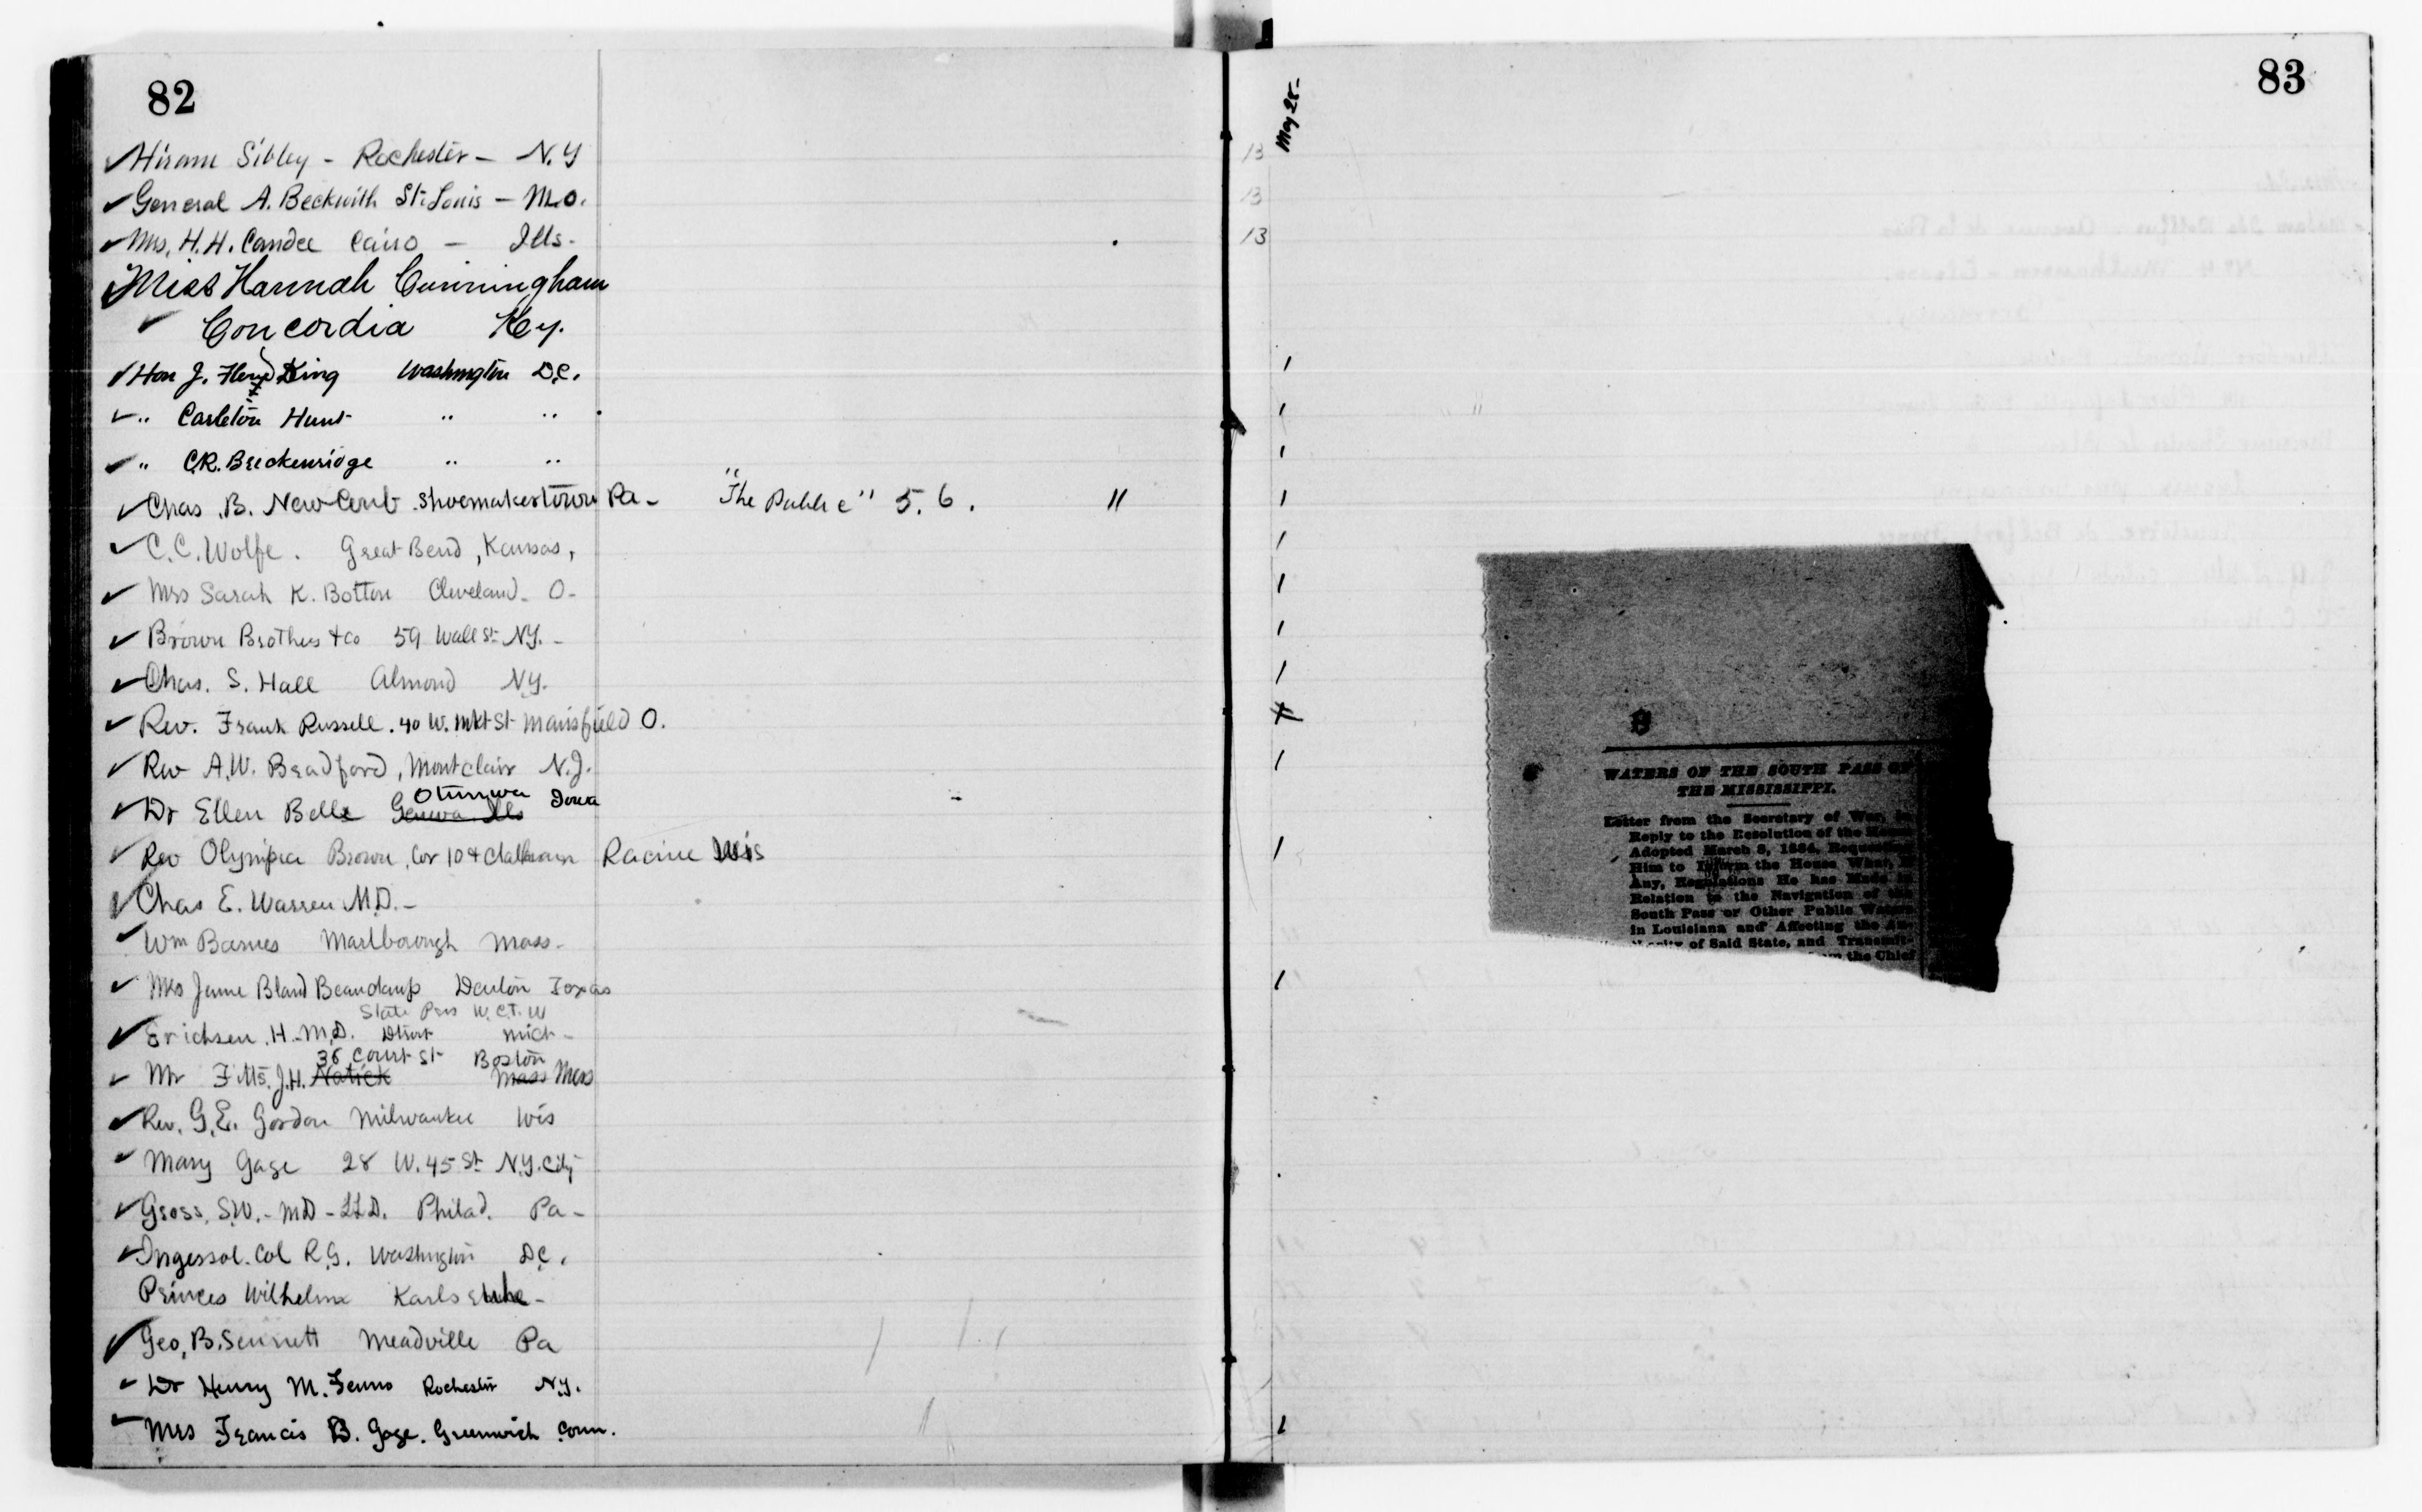 82
✓ Hiram Sibley - Rochester - N.Y
✓ General A. Beckwith St. Louis - Mo.
✓ Mrs. H. H. Candee Cairo - Ills-
✓ Miss Hannah Cunningham
✓ Concordia Ky.
✓ Hon J. Floyd King Washington D.C.
✓ " Carleton Hunt " "
✓ " C.R. Breckenridge " "
✓ Chas. B. NewComb. Shoemakertown Pa- "The Public" 5. 6. "
✓ C.C. Wolfe. Great Bend, Kansas,
✓ Mrs Sarah K. Bolton Cleveland- O-
✓ Brown Brothers & Co 59 Wall St- N.Y. -
✓ Chas. S. Hall Almond N.Y.
✓ Rev. Frank Russell. 40 W. Mkt St- Mansfield O.
✓ Rev A.W. Bradford, Montclair N.J.
Otumwa Iowa
✓ Dr Ellen Belle Geneva Ills
✓ Rev Olympia Brown, Cor 10 & Racine Wis
✓ Chas E. Warren M.D. -
✓ Wm Barnes Marlborough Mass-
✓ Mrs Jane Bland Beauchamp Denton Texas
State Pres W.C.T.U
✓ Erichsen. H- M.D. Detroit Mich-
36 Court St- Boston
✓ Mr Fitts, J.H. Natick Mass Mass
✓ Rev. G.E. Gordon Milwaukee Wis
✓ Mary Gage 28 W. 45 St N.Y. City
✓ Gross, S.W. - MD - LLD. Philad. Pa-
✓ Ingersol. Col R.G. Washington D.C.
Princes Wilhelm Karlsruhe-
✓ Geo. B. Sennett Meadville Pa
✓ Dr Henry M. Fenno Rochester N.Y.
✓ Mrs Francis B. Gage. Greenwich Conn.
83
May 25-
13
13
13
WATERS OF THE SOUTH PASS OF
THE MISSISSIPPI.
Letter from the Secretary of War, in
Reply to the Resolution of the House
Adopted March 8, 1884, Requesting
Him to Inform the House What, if
Any, Regulations He has Made in
Relation to the Navigation of the
South Pass or Other Public Waters
in Louisiana and Affecting the Au-
thority of Said State, and Transmit-
from the Chief